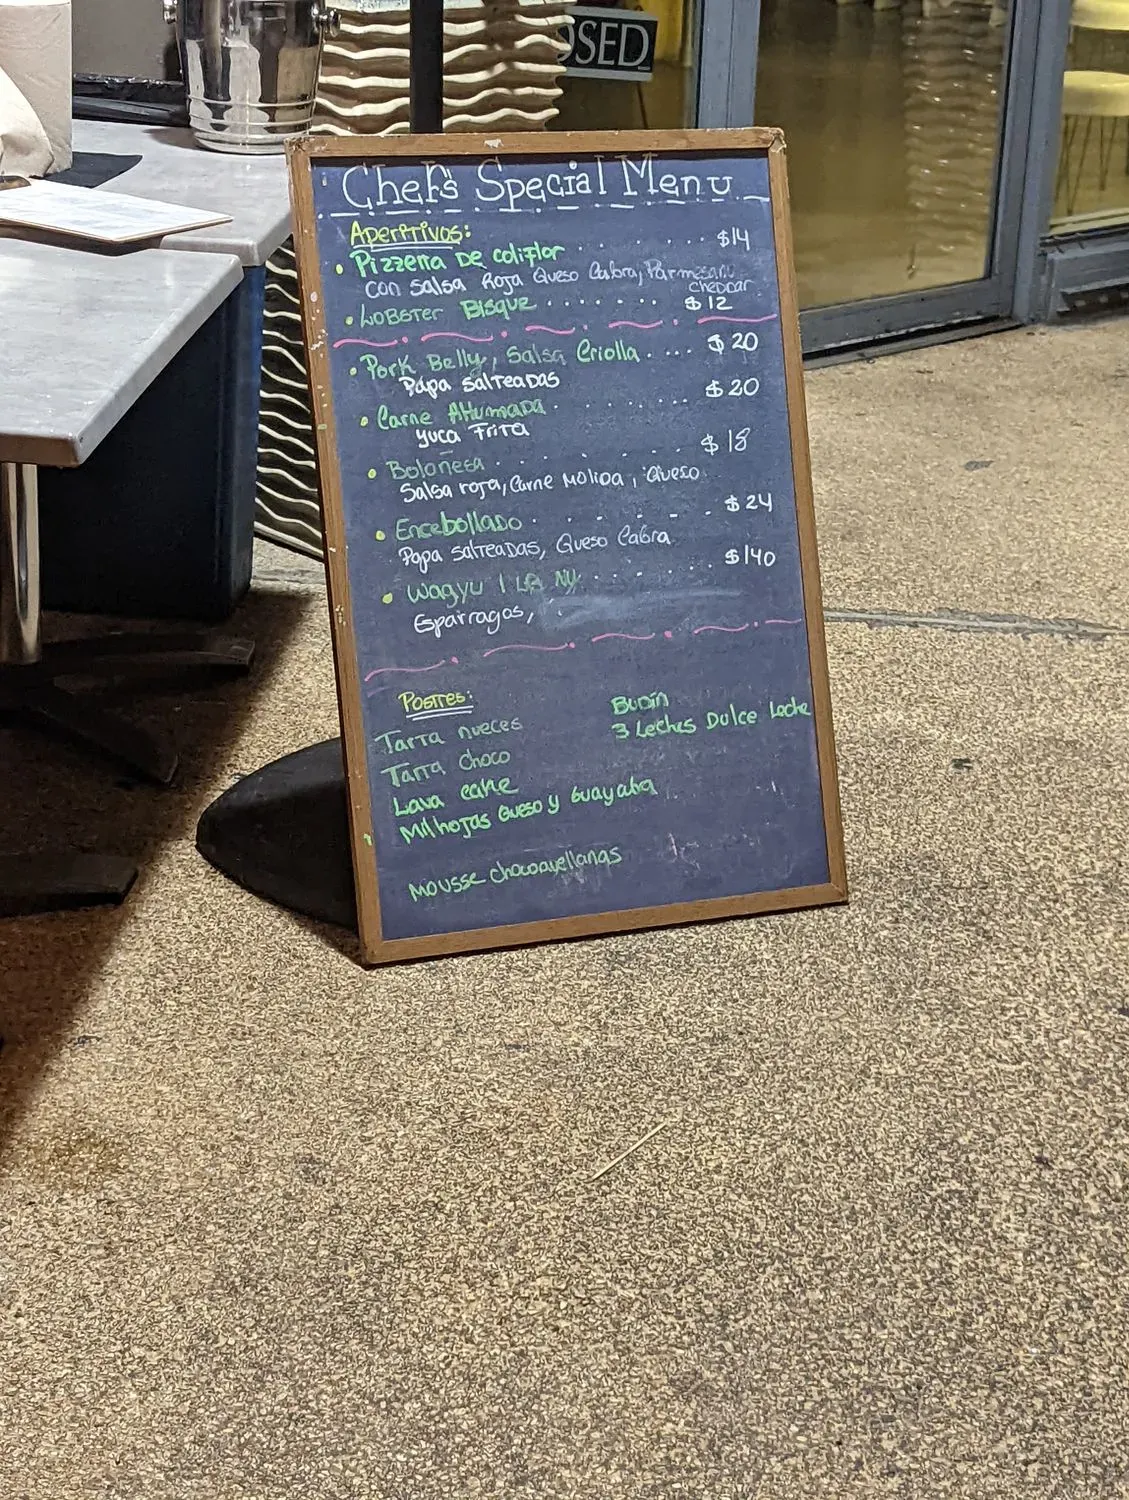 OSED
Chef's Special Menu
Aperitivos:
• Pizzetta De coliflor . . . . . . . $14
con salsa Roja Queso Cabra, Parmesano
cheddar
• Lobster Bisque . . . . . . . $12
• Pork Belly, Salsa Criolla . . . . $20
Papa salteadas
• Carne Ahumada . . . . . . . $20
Yuca Frita
• Bolonesa . . . . . . . $18
Salsa roja, Carne Molida, Queso
• Encebollado . . . . . . $24
Papa salteadas, Queso Cabra
• Wagyu 1 LB NY . . . . . . $140
Esparragos,
Postres:
Tarta nueces
Tarta choco
Lava cake
Milhojas Queso y Guayaba
Mousse chocoavellanas
Budin
3 Leches Dulce Leche